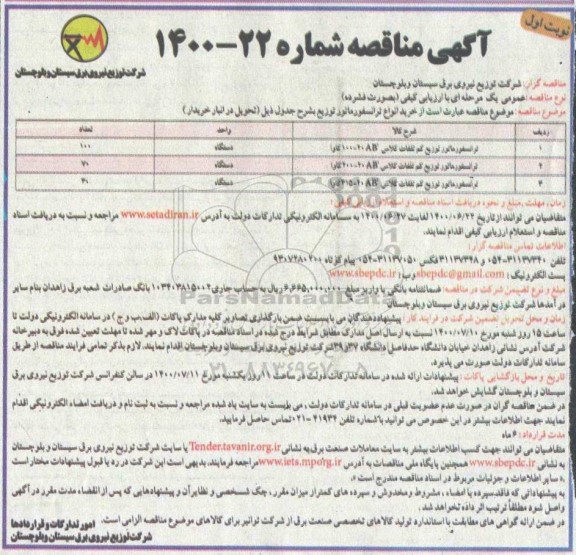 نوبت اول
آگهی مناقصه شماره ۲۲-۱۴۰۰
شرکت توزیع نیروی برق سیستان وبلوچستان
مناقصه گزار: شرکت توزیع نیروی برق سیستان وبلوچستان
نوع مناقصه: عمومی یک مرحله ای با ارزیابی کیفی (بصورت فشرده)
موضوع مناقصه: موضوع مناقصه عبارت است از خرید انواع ترانسفورماتور توزیع بشرح جدول ذیل (تحویل در انبار خریدار)
ردیف شرح کالا واحد تعداد
۱ ترانسفورماتور توزیع کم تلفات کلاس AB' ۲۰-۱۰۰ کاوا دستگاه ۱۰۰
۲ ترانسفورماتور توزیع کم تلفات کلاس AB' ۲۰-۲۰۰ کاوا دستگاه ۷۰
۳ ترانسفورماتور توزیع کم تلفات کلاس AB' ۲۰-۳۱۵ کاوا دستگاه ۳۰
زمان، مهلت، مبلغ و نحوه دریافت اسناد مناقصه و استعلام ارزیابی کیفی:
متقاضیان می توانند از تاریخ ۱۴۰۰/۰۶/۲۲ لغایت ۱۴۰۰/۰۶/۲۷ به سامانه الکترونیکی تدارکات دولت به آدرس www.setadiran.ir مراجعه و نسبت به دریافت اسناد
مناقصه و استعلام ارزیابی کیفی اقدام نمایند.
اطلاعات تماس مناقصه گزار:
تلفن ۳۱۱۳۷۳۴۰-۰۵۴ و ۳۱۱۳۷۳۴۸ فکس ۳۱۱۳۷۰۵۰-۰۵۴ پیام کوتاه ۹۳۰۷۲۸۰۲۰۰
پست الکترونیکی: sbepdc@gmail.com وب: www.sbepdc.ir
مبلغ و نوع تضمین شرکت در مناقصه: ضمانتنامه بانکی یا واریز مبلغ ۶,۶۶۵,۰۰۰,۰۰۰ ریال به حساب جاری ۰۱۰۳۴۰۳۸۱۵۰۰۲ بانک صادرات شعبه برق زاهدان بنام سایر
در آمدها شرکت توزیع نیروی برق سیستان وبلوچستان
زمان و محل تحویل تضمین شرکت در فرایند کار: پیشنهاددهندگان می بایست ضمن بارگذاری تصاویر کلیه مدارک پاکات (الف، ب و ج) در سامانه الکترونیکی دولت تا
ساعت ۱۵ روز شنبه مورخ ۱۴۰۰/۰۷/۱۰ نسبت به ارسال اصل مدارک مطابق شرایط درج شده در اسناد مناقصه در پاکات لاک و مهر شده تا مهلت تعیین شده فوق به دبیرخانه
شرکت آدرس نشانی زاهدان خیابان دانشگاه حدفاصل دانشگاه ۳۷و۳۹ شرکت توزیع نیروی برق سیستان وبلوچستان اقدام نمایند. لازم بذکر تمامی فرایند مناقصه از طریق
سامانه تدارکات دولت صورت می پذیرد.
تاریخ و محل بازگشایی پاکات: پیشنهادات ارائه شده در سامانه تدارکات دولت در ساعت ۱۱ روز یکشنبه مورخ ۱۴۰۰/۰۷/۱۱ در سالن کنفرانس شرکت توزیع نیروی برق
سیستان و بلوچستان گشایش خواهد شد.
در ضمن مناقصه گران در صورت عدم عضویت قبلی در سامانه تدارکات دولت، می بایست به سایت یاد شده مراجعه و نسبت به ثبت نام و دریافت امضاء الکترونیکی اقدام
نمایند جهت اطلاعات بیشتر در این خصوص می توانید با شماره تلفن ۴۱۹۳۴-۰۲۱ تماس حاصل فرمایید.
مدت قرارداد: ۶ ماه
متقاضیان می توانند جهت کسب اطلاعات بیشتر به سایت معاملات صنعت برق به نشانی Tender.tavanir.org.ir یا سایت شرکت توزیع نیروی برق سیستان و بلوچستان
به نشانی www.sbepdc.ir همچنین پایگاه ملی مناقصات به آدرس www.iets.mporg.ir مراجعه فرمایند. بدیهی است این شرکت در رد یا قبول پیشنهادات مختار است
به سایر اطلاعات و جزئیات مربوط در اسناد مناقصه مندرج است.
به پیشنهاداتی که فاقد سپرده یا امضاء، مشروط و مخدوش و سپرده های کمتر از میزان مقرر، چک شخصی و نظایر آن و پیشنهادهایی که پس از انقضاء مدت مقرر در آگهی
واصل شود مطلقا ترتیب اثر داده نخواهد شد.
در ضمن ارائه گواهی های مطابقت با استاندارد تولید کالاهای تخصصی صنعت برق از شرکت توانیر برای کالاهای موضوع مناقصه الزامی است.
امور تدارکات و قراردادها
شرکت توزیع نیروی برق سیستان وبلوچستان
ParsNamadData